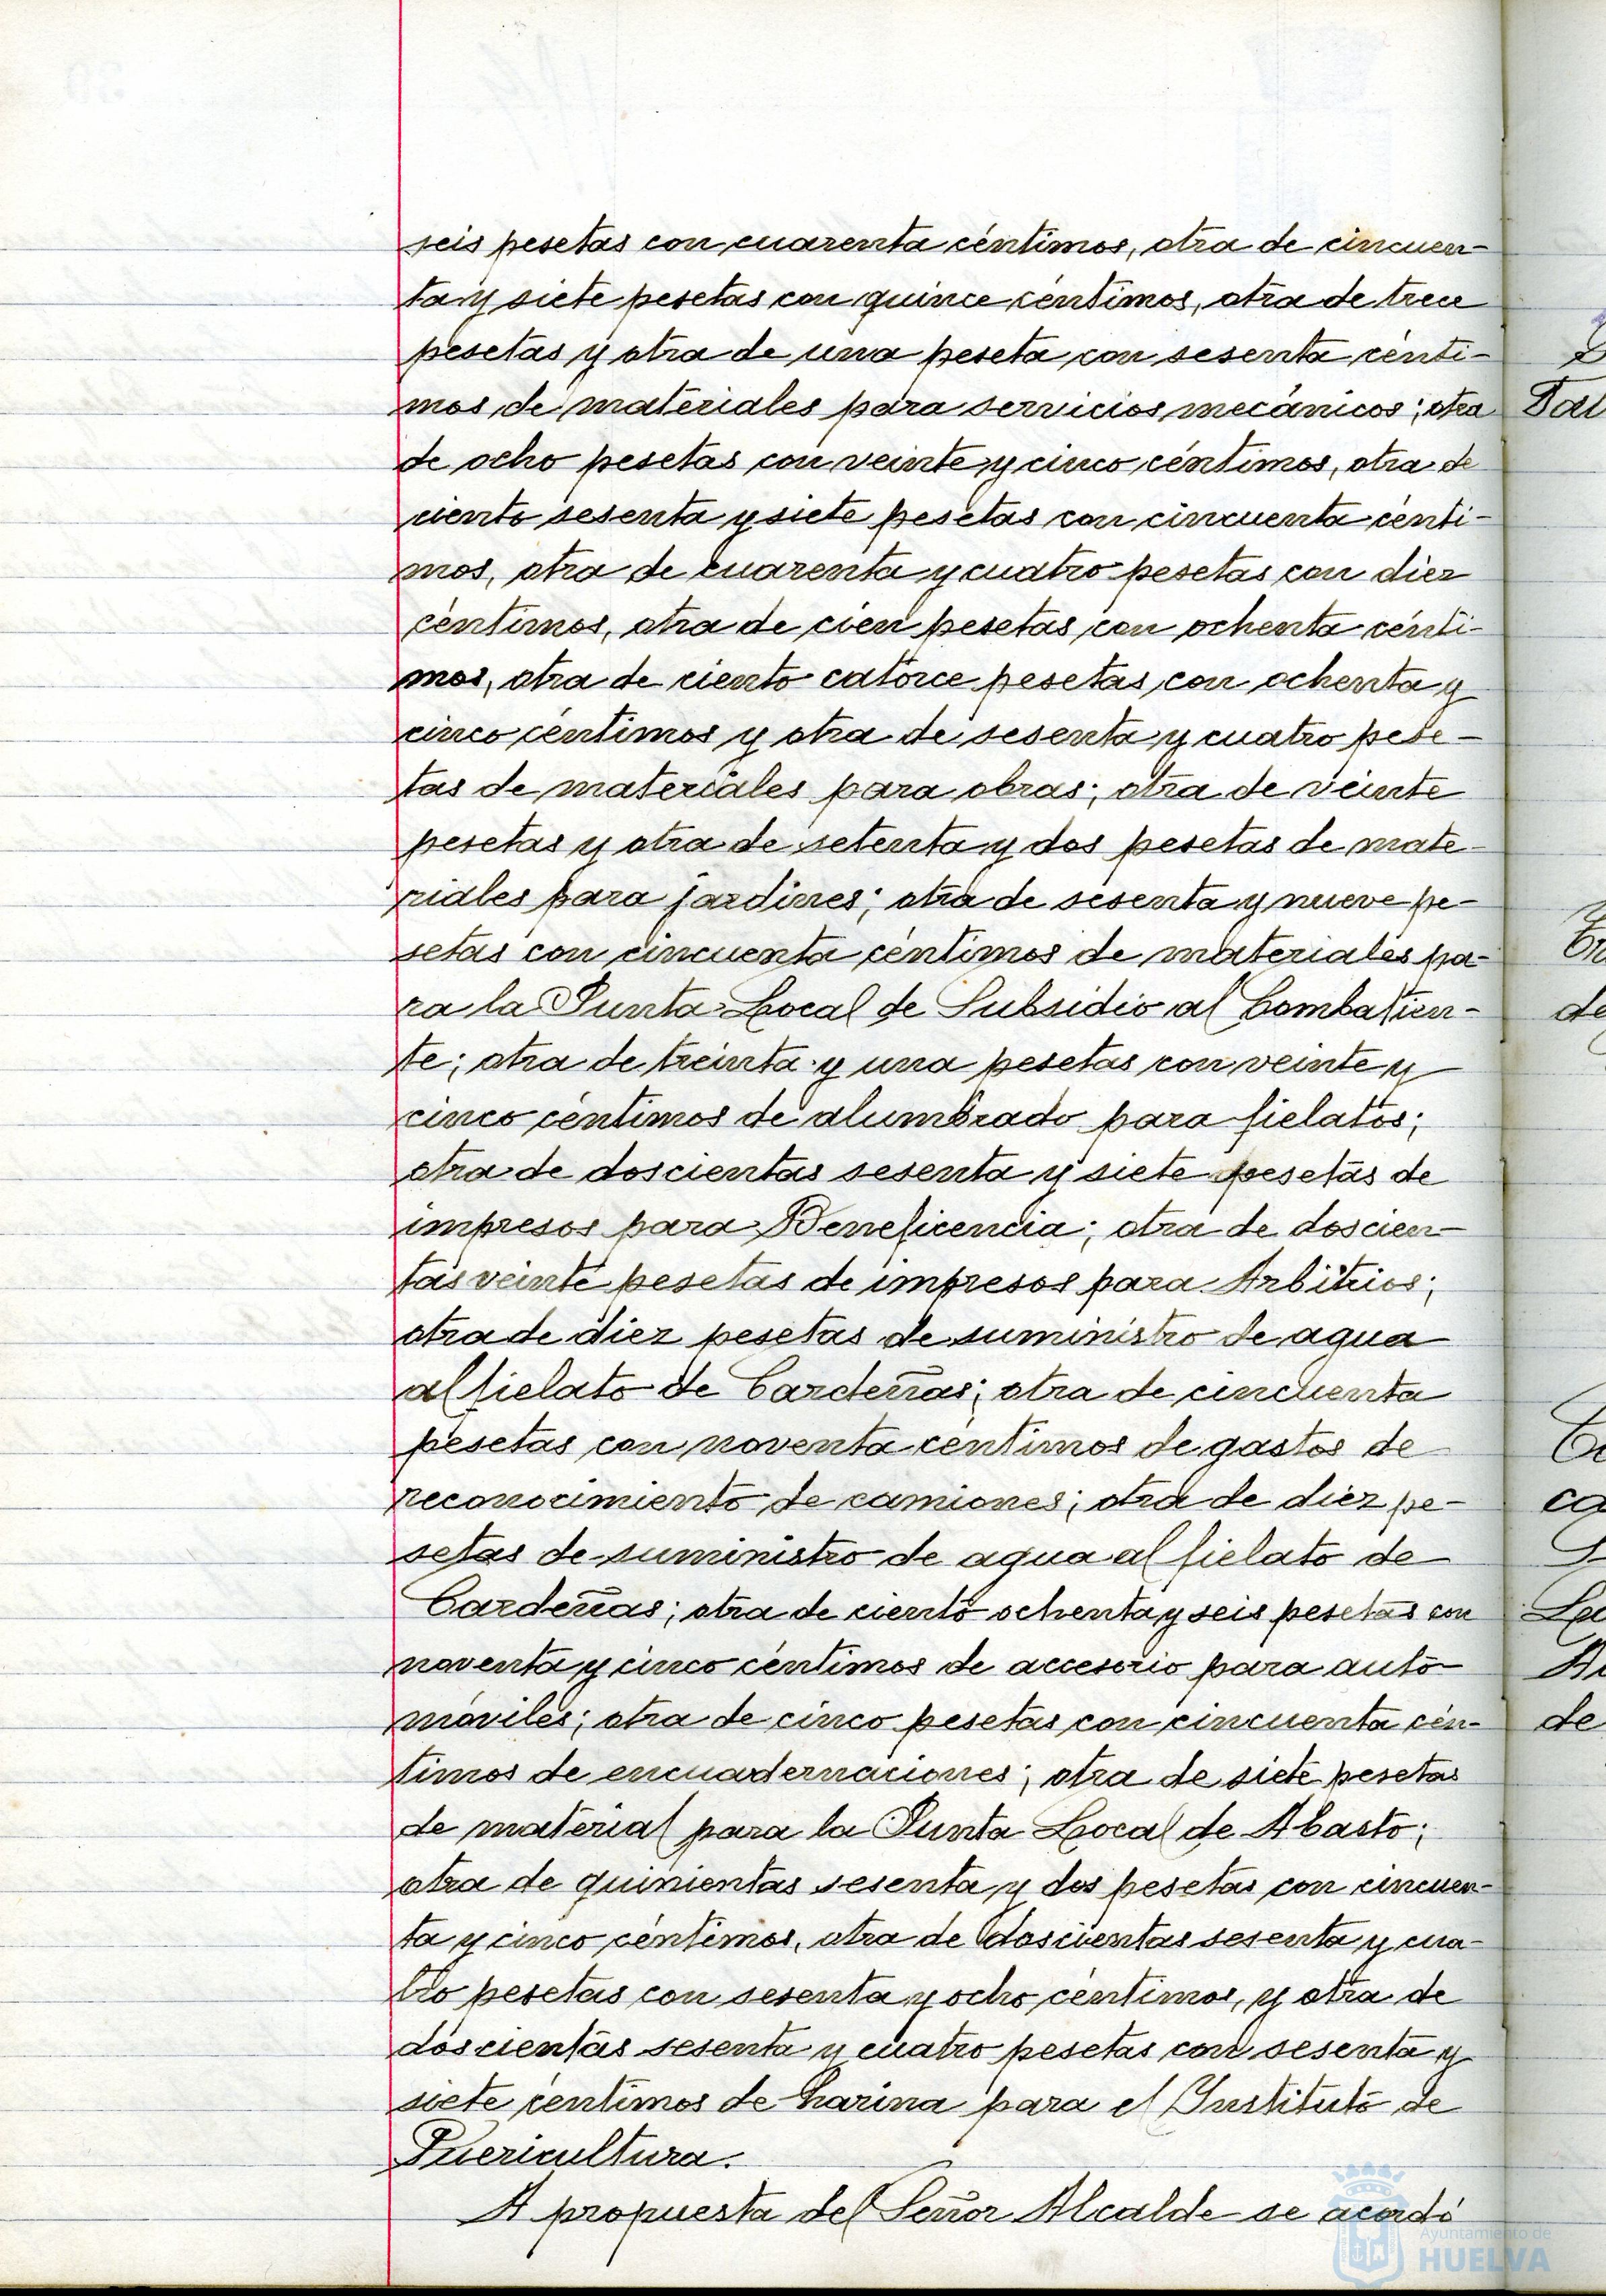 seis pesetas con cuarenta céntimos, otra de cincuen-
ta y siete pesetas con quince céntimos, otra de trece
pesetas y otra de una peseta con sesenta cénti-
mos de materiales para servicios mecánicos; otra
de ocho pesetas con veinte y cinco céntimos, otra de
ciento sesenta y siete pesetas con cincuenta cénti-
mos, otra de cuarenta y cuatro pesetas con diez
céntimos, otra de cien pesetas con ochenta cénti-
mos, otra de ciento catorce pesetas con ochenta y
cinco céntimos y otra de sesenta y cuatro pese-
tas de materiales para obras; otra de veinte
pesetas y otra de setenta y dos pesetas de mate-
riales para jardines; otra de sesenta y nueve pe-
setas con cincuenta céntimos de materiales pa-
ra la Junta Local de Subsidio al Combatien-
te; otra de treinta y una pesetas con veinte y
cinco céntimos de alumbrado para fielatos;
otra de doscientas sesenta y siete pesetas de
impresos para Beneficencia; otra de doscien-
tas veinte pesetas de impresos para Arbitrios;
otra de diez pesetas de suministro de agua
al fielato de Cardeñas; otra de cincuenta
pesetas con noventa céntimos de gastos de
reconocimiento de camiones; otra de diez pe-
setas de suministro de agua al fielato de
Cardeñas; otra de ciento ochenta y seis pesetas con
noventa y cinco céntimos de accesorio para auto-
móviles; otra de cinco pesetas con cincuenta cén-
timos de encuadernaciones; otra de siete pesetas
de material para la Junta Local de Abasto;
otra de quinientas sesenta y dos pesetas con cincuen-
ta y cinco céntimos, otra de doscientas sesenta y cua-
tro pesetas con sesenta y ocho céntimos, y otra de
doscientas sesenta y cuatro pesetas con sesenta y
siete céntimos de harina para el Instituto de
Puericultura.
A propuesta del Señor Alcalde se acordó
Ayuntamiento de
HUELVA